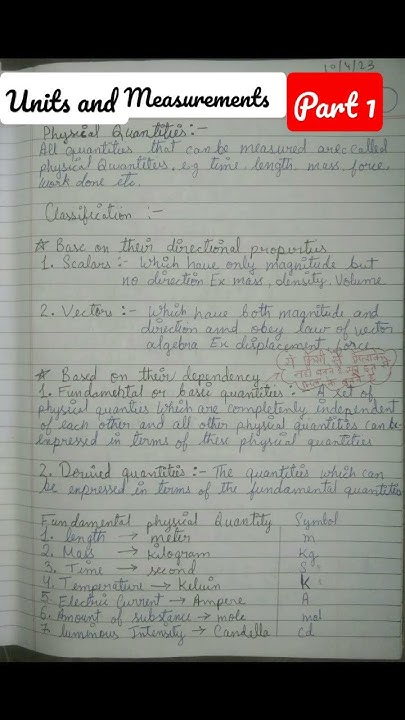 10/4/23
Units and Measurements
Part 1
Physical Quantities:-
All quantites that can be measured are called
physical Quantiters. e.g time, length, mass, force,
work done etc.
Classification :-
☆ Base on their directional properties
1. Scalars:- Which have only magnitude but
no direction Ex mass, density, Volume
2. Vectors:- Which have both magnitude and
direction and obey law of vector
algebra Ex displacement, force
☆ Based on their dependency
1. Fundamental or basic quantities:- A set of
physical quanties which are completenly independent
of each other and all other physical quantities can be
expressed in terms of these physical quantities
2. Derived quantities:- The quantities which can
be expressed in terms of the fundamental quantites
Fundamental physical Quantity Symbol
1. length → meter m
2. Mass → kilogram Kg
3. Time → second S
4. Temperature → Kelvin K
5. Electric Current → Ampere A
6. Amount of substance → mole mol
7. luminous Intensity → Candella cd